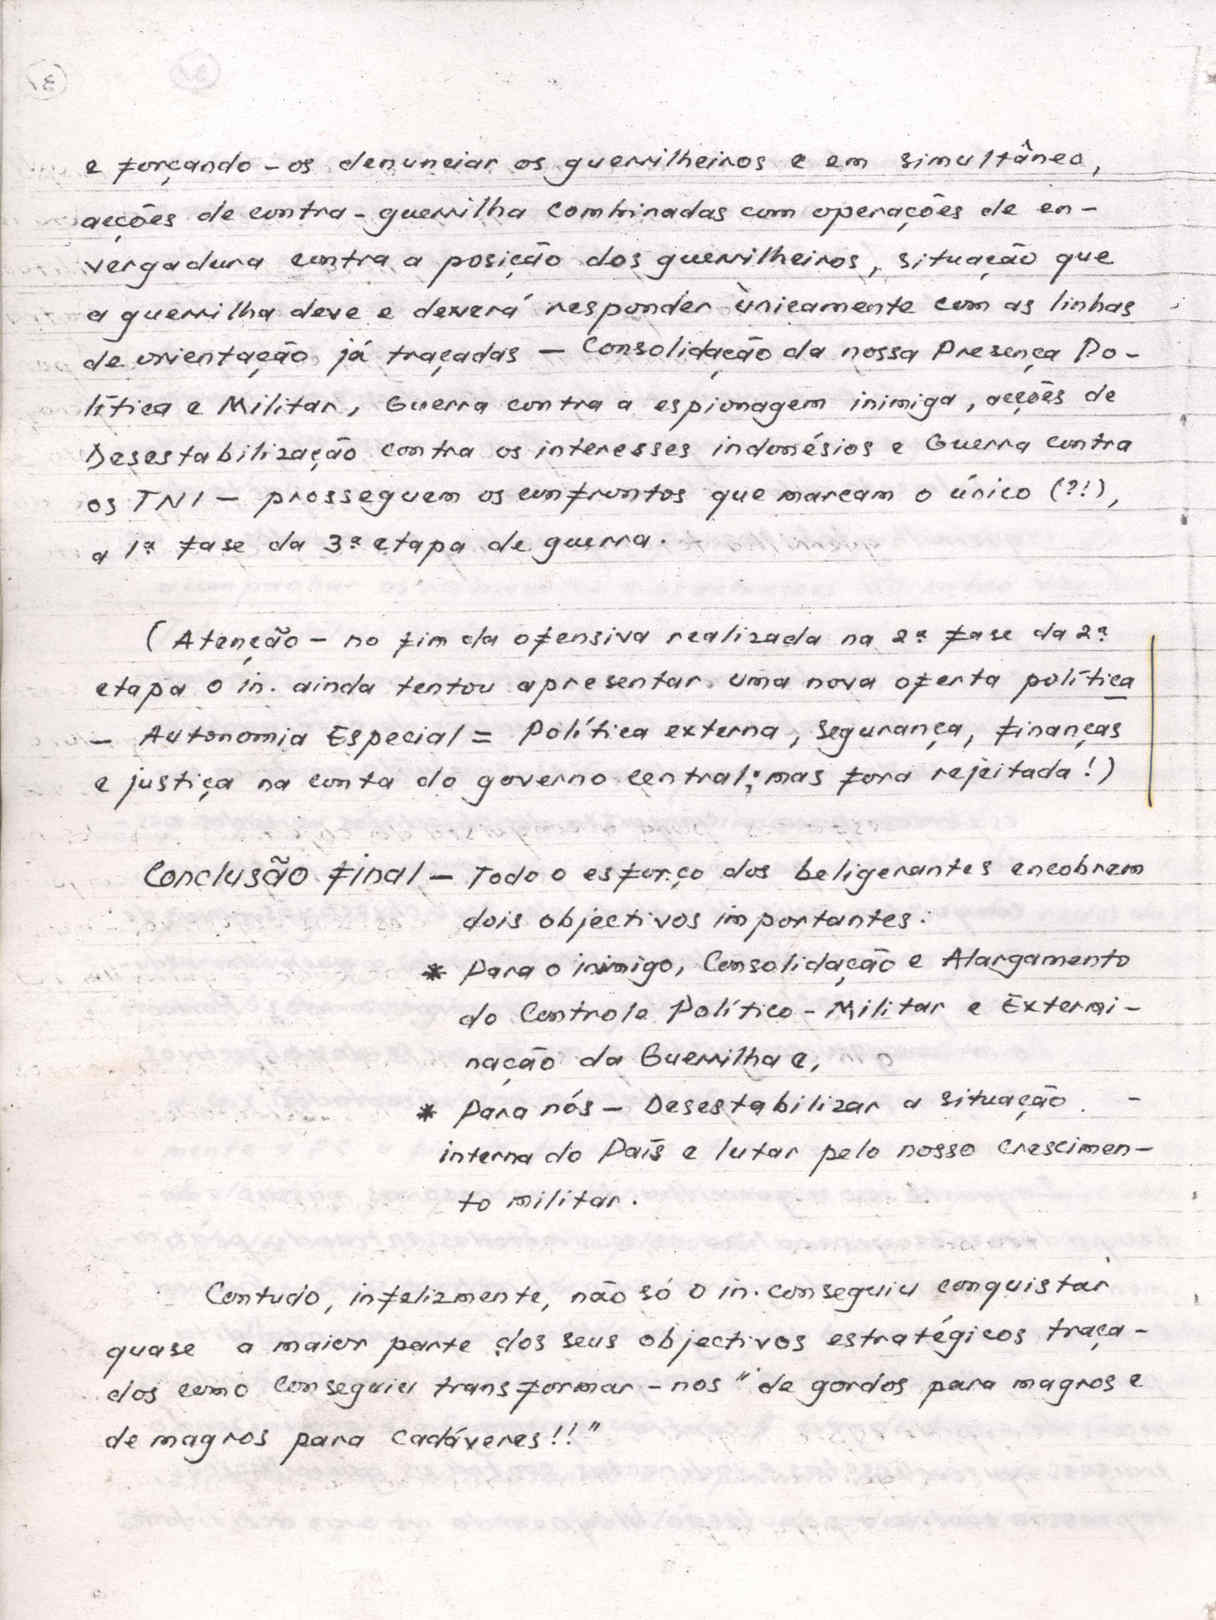 e forçando-os denunciar os guerrilheiros e em simultâneo,
acções de contra-guerrilha combinadas com operações de en-
vergadura contra a posição dos guerrilheiros, situação que
a guerrilha deve e deverá responder ùnicamente com as linhas
de orientação já traçadas — Consolidação da nossa Presença Po-
lítica e Militar, Guerra contra a espionagem inimiga, acções de
Desestabilização contra os interesses indonésios e Guerra contra
os TNI — prosseguem os confrontos que marcam o único (?!),
a 1ª fase da 3ª etapa de guerra.
(Atenção — no fim da ofensiva realizada na 2ª fase da 2ª
etapa o in. ainda tentou apresentar uma nova oferta política
— Autonomia Especial = Política externa, segurança, finanças
e justiça na conta do governo central; mas fora rejeitada!)
Conclusão final — Todo o esforço dos beligerantes encobrem
dois objectivos importantes:
* Para o inimigo, Consolidação e Alargamento
do Controle Político-Militar e Extermi-
nação da Guerrilha e,
* Para nós — Desestabilizar a situação
interna do País e lutar pelo nosso crescimen-
to militar.
Contudo, infelizmente, não só o in. conseguiu conquistar
quase a maior parte dos seus objectivos estratégicos traça-
dos como conseguiu transformar-nos "de gordos para magros e
de magros para cadáveres!!"